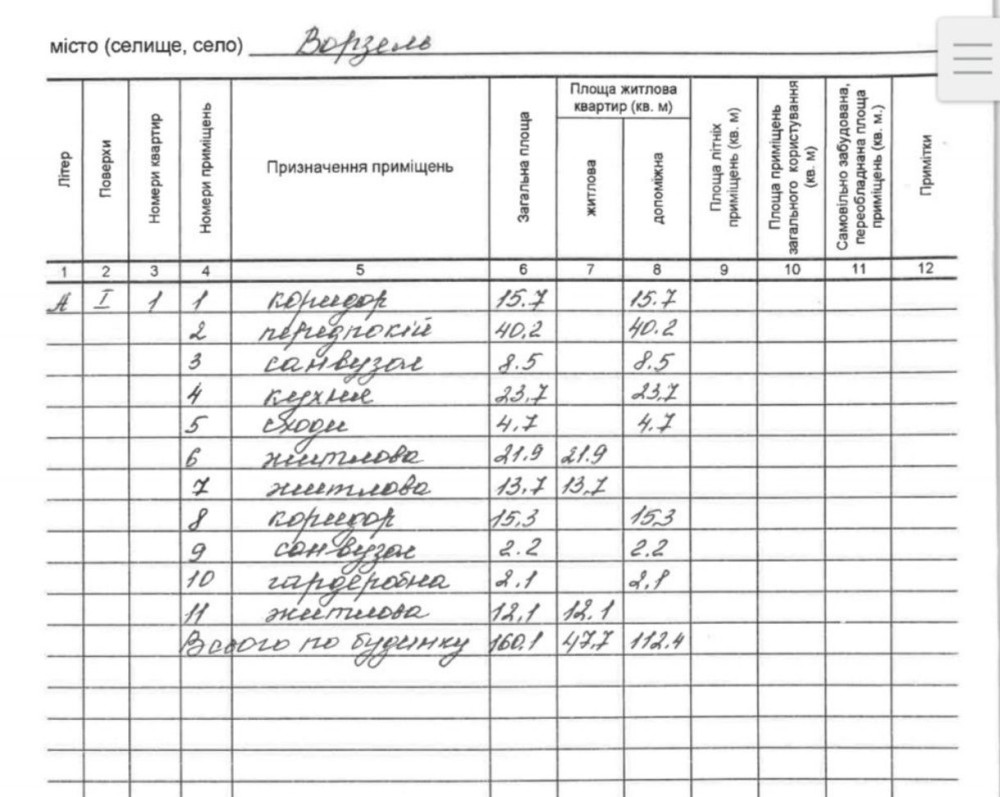 місто (селище, село) Ворзель
Літер | Поверхи | Номери квартир | Номери приміщень | Призначення приміщень | Загальна площа | Площа житлова квартир (кв. м) | житлова | допоміжна | Площа літніх приміщень (кв. м) | Площа приміщень загального користування (кв. м) | Самовільно забудована, переобладнана площа приміщень (кв. м.) | Примітки
1 2 3 4 5 6 7 8 9 10 11 12
А I 1 1 коридор 15.7 15.7
2 передпокій 40,2 40.2
3 санвузол 8.5 8.5
4 кухня 23,7 23,7
5 сходи 4.7 4.7
6 житлова 21.9 21.9
7 житлова 13.7 13,7
8 коридор 15,3 15,3
9 санвузол 2.2 2.2
10 гардеробна 2.1 2,1
11 житлова 12,1 12.1
Всього по будинку 160.1 47.7 112.4